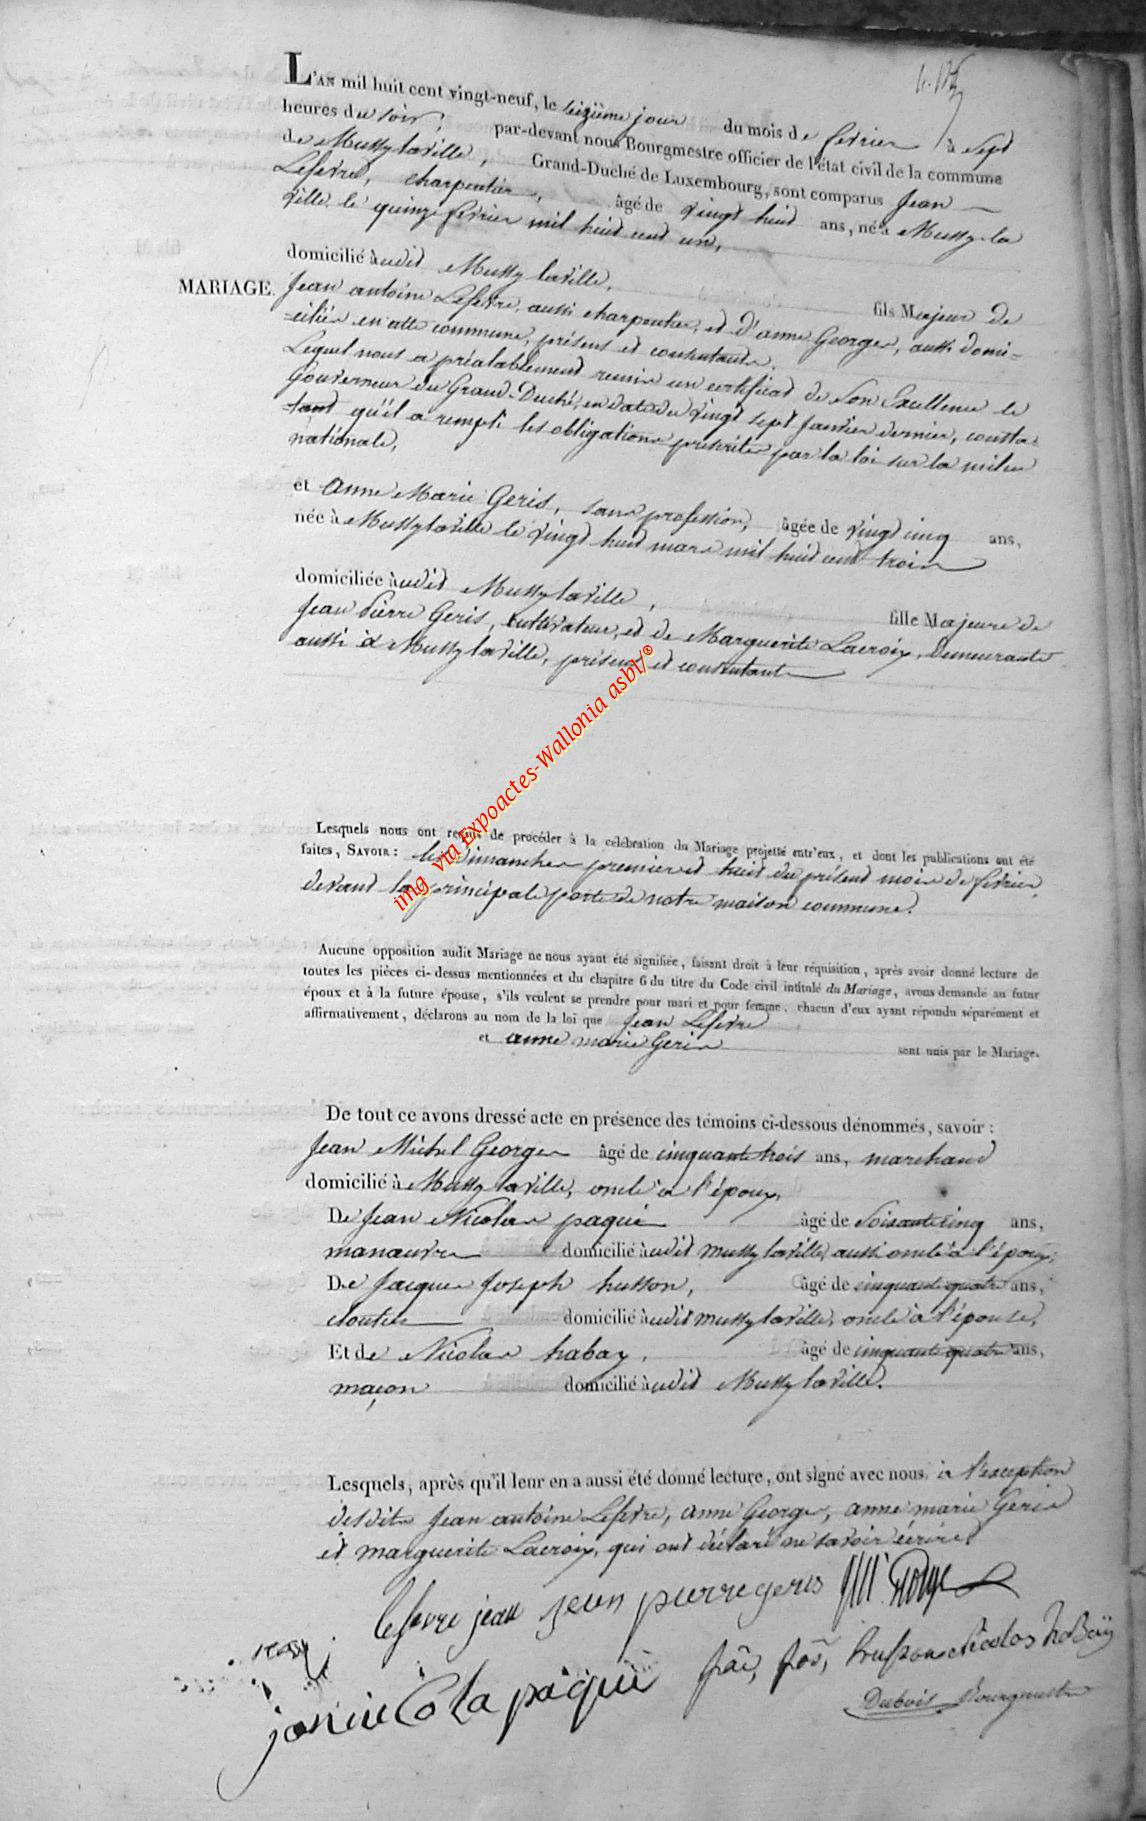 L'AN mil huit cent vingt-neuf, le seizième jour du mois de fevrier à Sept
heures du soir, par-devant nous Bourgmestre officier de l'état civil de la commune
de Mussy laville, Grand-Duché de Luxembourg, sont comparus Jean
Lefevre, charpentier, âgé de vingt huit ans, né à Mussy-la
ville le quinze fevrier mil huit cent un,
domicilié audit Mussy laville,
fils Majeur de
MARIAGE.
Jean antoine Lefevre, aussi charpentier, et d'anne Georges, aussi domi-
-ciliés en cette commune, présens et consentants.
Lequel nous a préalablement remis un certificat de Son Excellence le
Gouverneur du Grand-Duché, en date du vingt sept Janvier dernier, consta-
tant qu'il a rempli les obligations prescrites par la loi sur la milice
nationale,
et Anne Marie Geris, sans profession, âgée de vingt cinq ans,
née à Mussy laville le vingt huit mars mil huit cent trois
domiciliée audit Mussy laville,
fille Majeure de
Jean Pierre Geris, cultivateur, et de Marguerite Lacroix, demeurants
aussi à Mussy laville, présens et consentants
Lesquels nous ont requis de procéder à la célébration du Mariage projetté entr'eux, et dont les publications ont été
faites, SAVOIR: les Dimanches premier et huit du présent mois de fevrier
devant la principale porte de notre maison commune.
Aucune opposition audit Mariage ne nous ayant été signifiée, faisant droit à leur réquisition, après avoir donné lecture de
toutes les pièces ci-dessus mentionnées et du chapitre 6 du titre du Code civil intitulé du Mariage, avons demandé au futur
époux et à la future épouse, s'ils veulent se prendre pour mari et pour femme, chacun d'eux ayant répondu séparément et
affirmativement, déclarons au nom de la loi que Jean Lefevre
et anne marie Geris sont unis par le Mariage.
De tout ce avons dressé acte en présence des témoins ci-dessous dénommés, savoir:
Jean Michel Georges âgé de cinquante trois ans, marchand
domicilié à Mussy laville, oncle à l'époux,
De Jean Nicolas paqué âgé de Soixante cinq ans,
manœuvre domicilié audit mussy laville, aussi oncle à l'époux;
De Jacques Joseph husson, âgé de cinquante quatre ans,
cloutier domicilié audit mussy laville, oncle à l'épouse,
Et de Nicolas habay, âgé de cinquante quatre ans,
maçon domicilié audit Mussy laville.
Lesquels, après qu'il leur en a aussi été donné lecture, ont signé avec nous, à l'exception
desdits Jean antoine Lefevre, anne Georges, anne marie Geris
et marguerite Lacroix, qui ont déclaré ne savoir écrire.
lefevre jean jean pierre geris
janicola paquè husson Nicolas habaÿ
Dubois Bourgmestre
img via Expoactes-Wallonia asbl/©